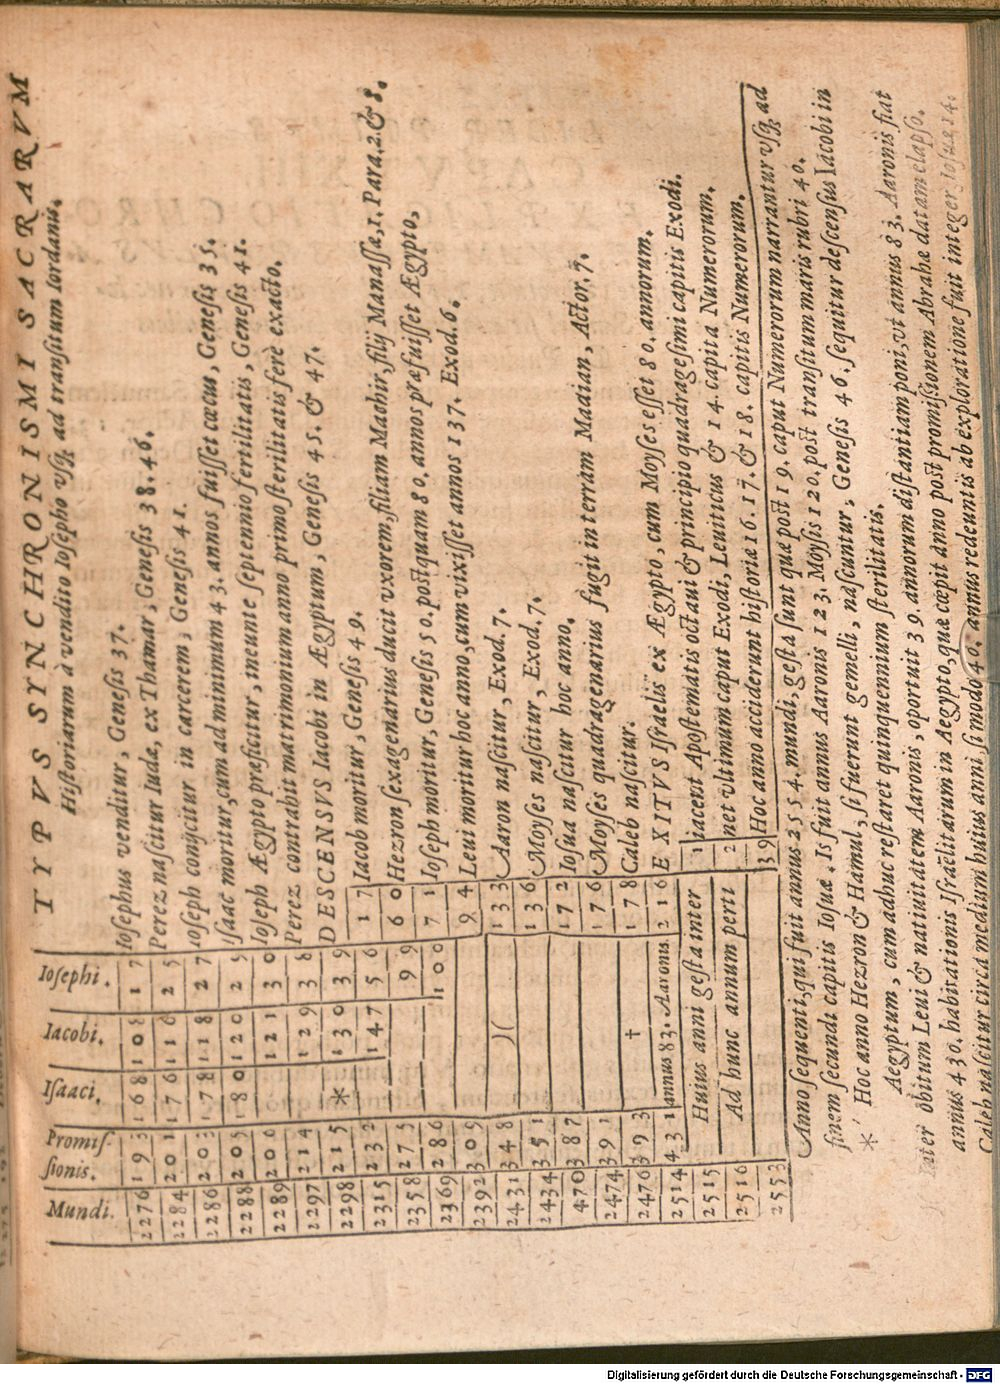 TYPVS SYNCHRONISMI SACRARVM
Historiarum à vendito Iosepho vsq; ad transitum Iordanis.
Mundi. Promissionis. Isaaci. Iacobi. Iosephi.
2276 193 168 108 17 Iosephus venditur, Genesis 37.
2284 201 176 116 25 Perez nascitur Iudæ, ex Thamar, Genesis 38.46.
2286 203 178 118 27 Ioseph conijcitur in carcerem, Genesis 41.
2288 205 180 120 2 Isaac moritur, cum ad minimum 43. annos fuisset cœcus, Genesis 35.
2289 206 121 30 Ioseph Ægypto præficitur, ineunte septennio fertilitatis, Genesis 41.
2297 214 129 38 Perez contrahit matrimonium anno primo sterilitatis ferè exacto.
2298 215 * 130 39 DESCENSVS Iacobi in Ægyptum, Genesis 45. & 47.
2315 232 147 56 17 Iacob moritur, Genesis 49.
2358 275 99 60 Hezron sexagenarius ducit vxorem, filiam Machir, filij Manassæ, 1. Para. 2. & 8.
2369 286 100 71 Ioseph moritur, Genesis 50. postquam 80. annos præfuisset Ægypto,
2392 309 94 Leui moritur hoc anno, cum vixisset annos 137. Exod. 6.
2431 348 )( 133 Aaron nascitur, Exod. 7.
2434 351 136 Moyses nascitur, Exod. 7.
470 387 172 Iosua nascitur hoc anno.
2474 391 176 Moyses quadragenarius fugit in terram Madian, Actor. 7.
2476 393 † 178 Caleb nascitur.
2514 431 annus 83. Aaronis 216 EXITVS Israelis ex Ægypto, cum Moyses esset 80. annorum.
2515 Huius anni gesta inter 1 iacent Apostematis octaui & principio quadragesimi capitis Exodi.
2516 Ad hunc annum perti 2 net vltimum caput Exodi, Leuiticus & 14. capita Numerorum.
2553 39 Hoc anno acciderunt historiæ 16. 17. & 18. capitis Numerorum.
Anno sequenti, qui fuit annus 2554. mundi, gesta sunt quæ post 19. caput Numerorum narrantur vsq; ad
finem secundi capitis Iosuæ. Is fuit annus Aaronis 123. Moysis 120. post transitum maris rubri 40.
* Hoc anno Hezron & Hamul, si fuerunt gemelli, nascuntur, Genesis 46. sequitur descensus Iacobi in
Aegyptum, cum adhuc restaret quinquennium sterilitatis.
Inter obitum Leui & natiuitatem Aaronis, oportuit 39. annorum distantiam poni, vt annus 83. Aaronis fiat
annus 430. habitationis Israëlitarum in Aegypto, quæ cœpit anno post promissionem Abrahæ datam elapso.
Caleb nascitur circa medium huius anni, si modo 40. annus redeuntis ab exploratione fuit integer, Iosuæ 14.
Digitalisierung gefördert durch die Deutsche Forschungsgemeinschaft - DFG